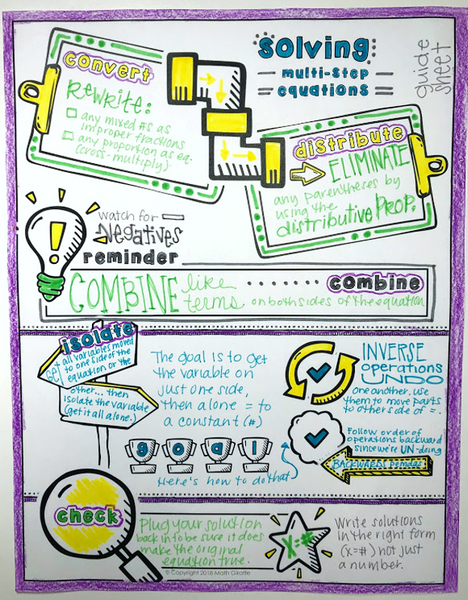 solving
multi-step
equations
guide
sheet
convert
REWRITE:
any mixed #s as
improper fractions
any proportion as eq.
(cross-multiply)
distribute
ELIMINATE
any parentheses by
using the
distributive PROP.
watch for
Negatives
reminder
COMBINE like
terms on both sides of the equation
combine
isolate
Get all variables moved
to one side of the
equation or the
other... then
isolate the variable
(get it all alone.)
The goal is to get
the variable on
just one side,
then alone = to
a constant (#)
goal
Here's how to do that
INVERSE
operations
UNDO
one another, use
them to move parts
to other side of =.
Follow order of
operations backward
since we're UN-doing
BACKWARDS
check
Plug your solution
back in to be sure it does
make the original
equation true.
X=#
Write solutions
in the right form
(x=#) not just
a number.
© Copyright 2018 Math Giraffe